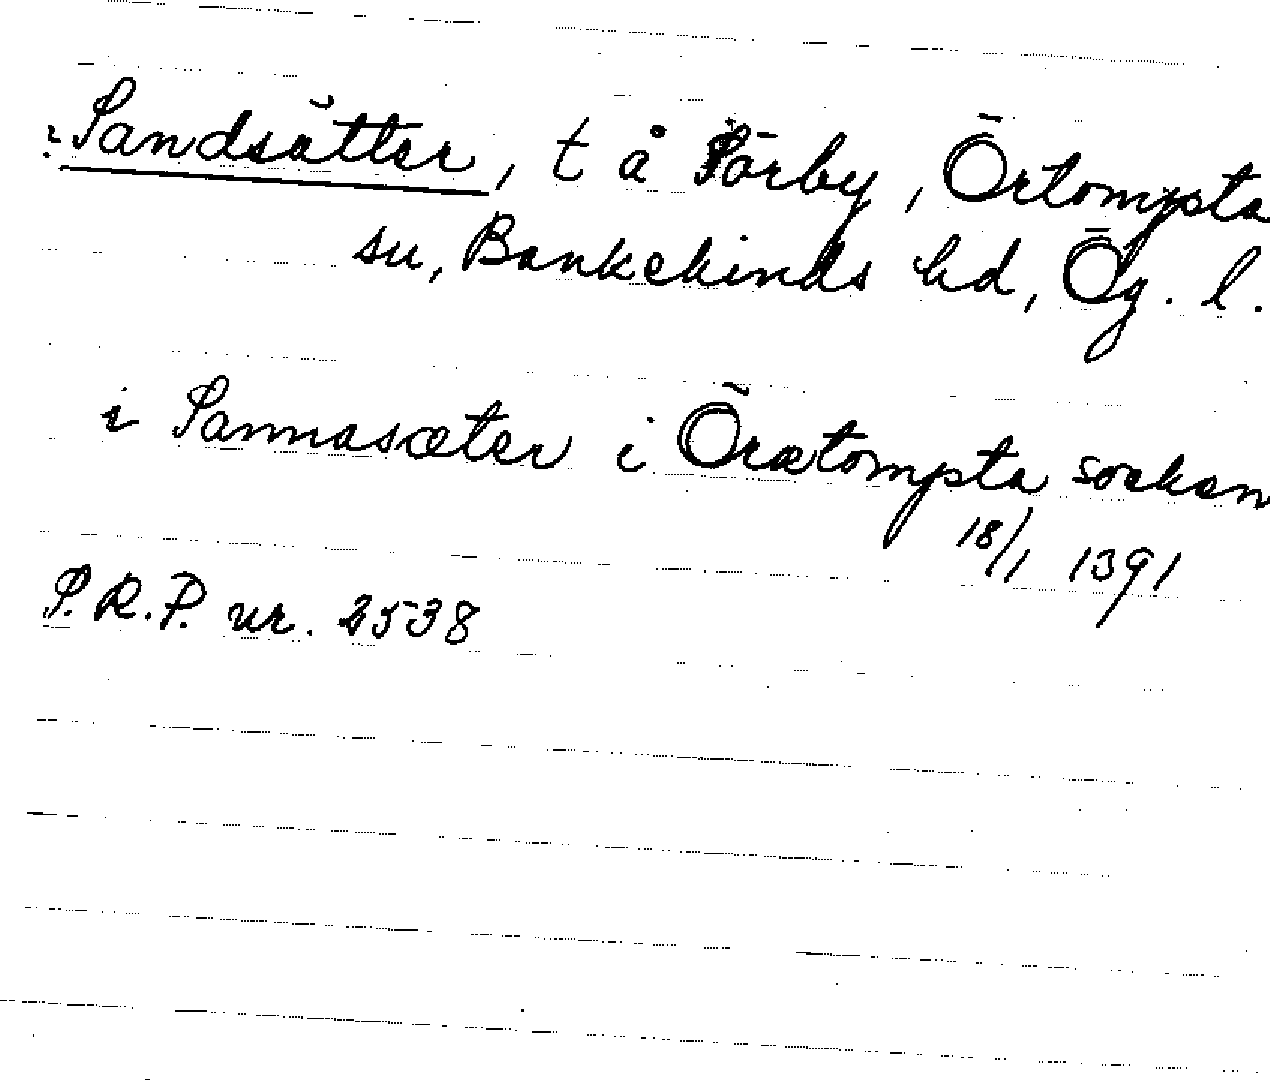 Sandsätter, t å Sörby, Örtompsta
sn, Bankekinds hd, Ög. l.
i Sannasæter i Örætompsta socken
18/1 1391
S.R.P. nr. 2538